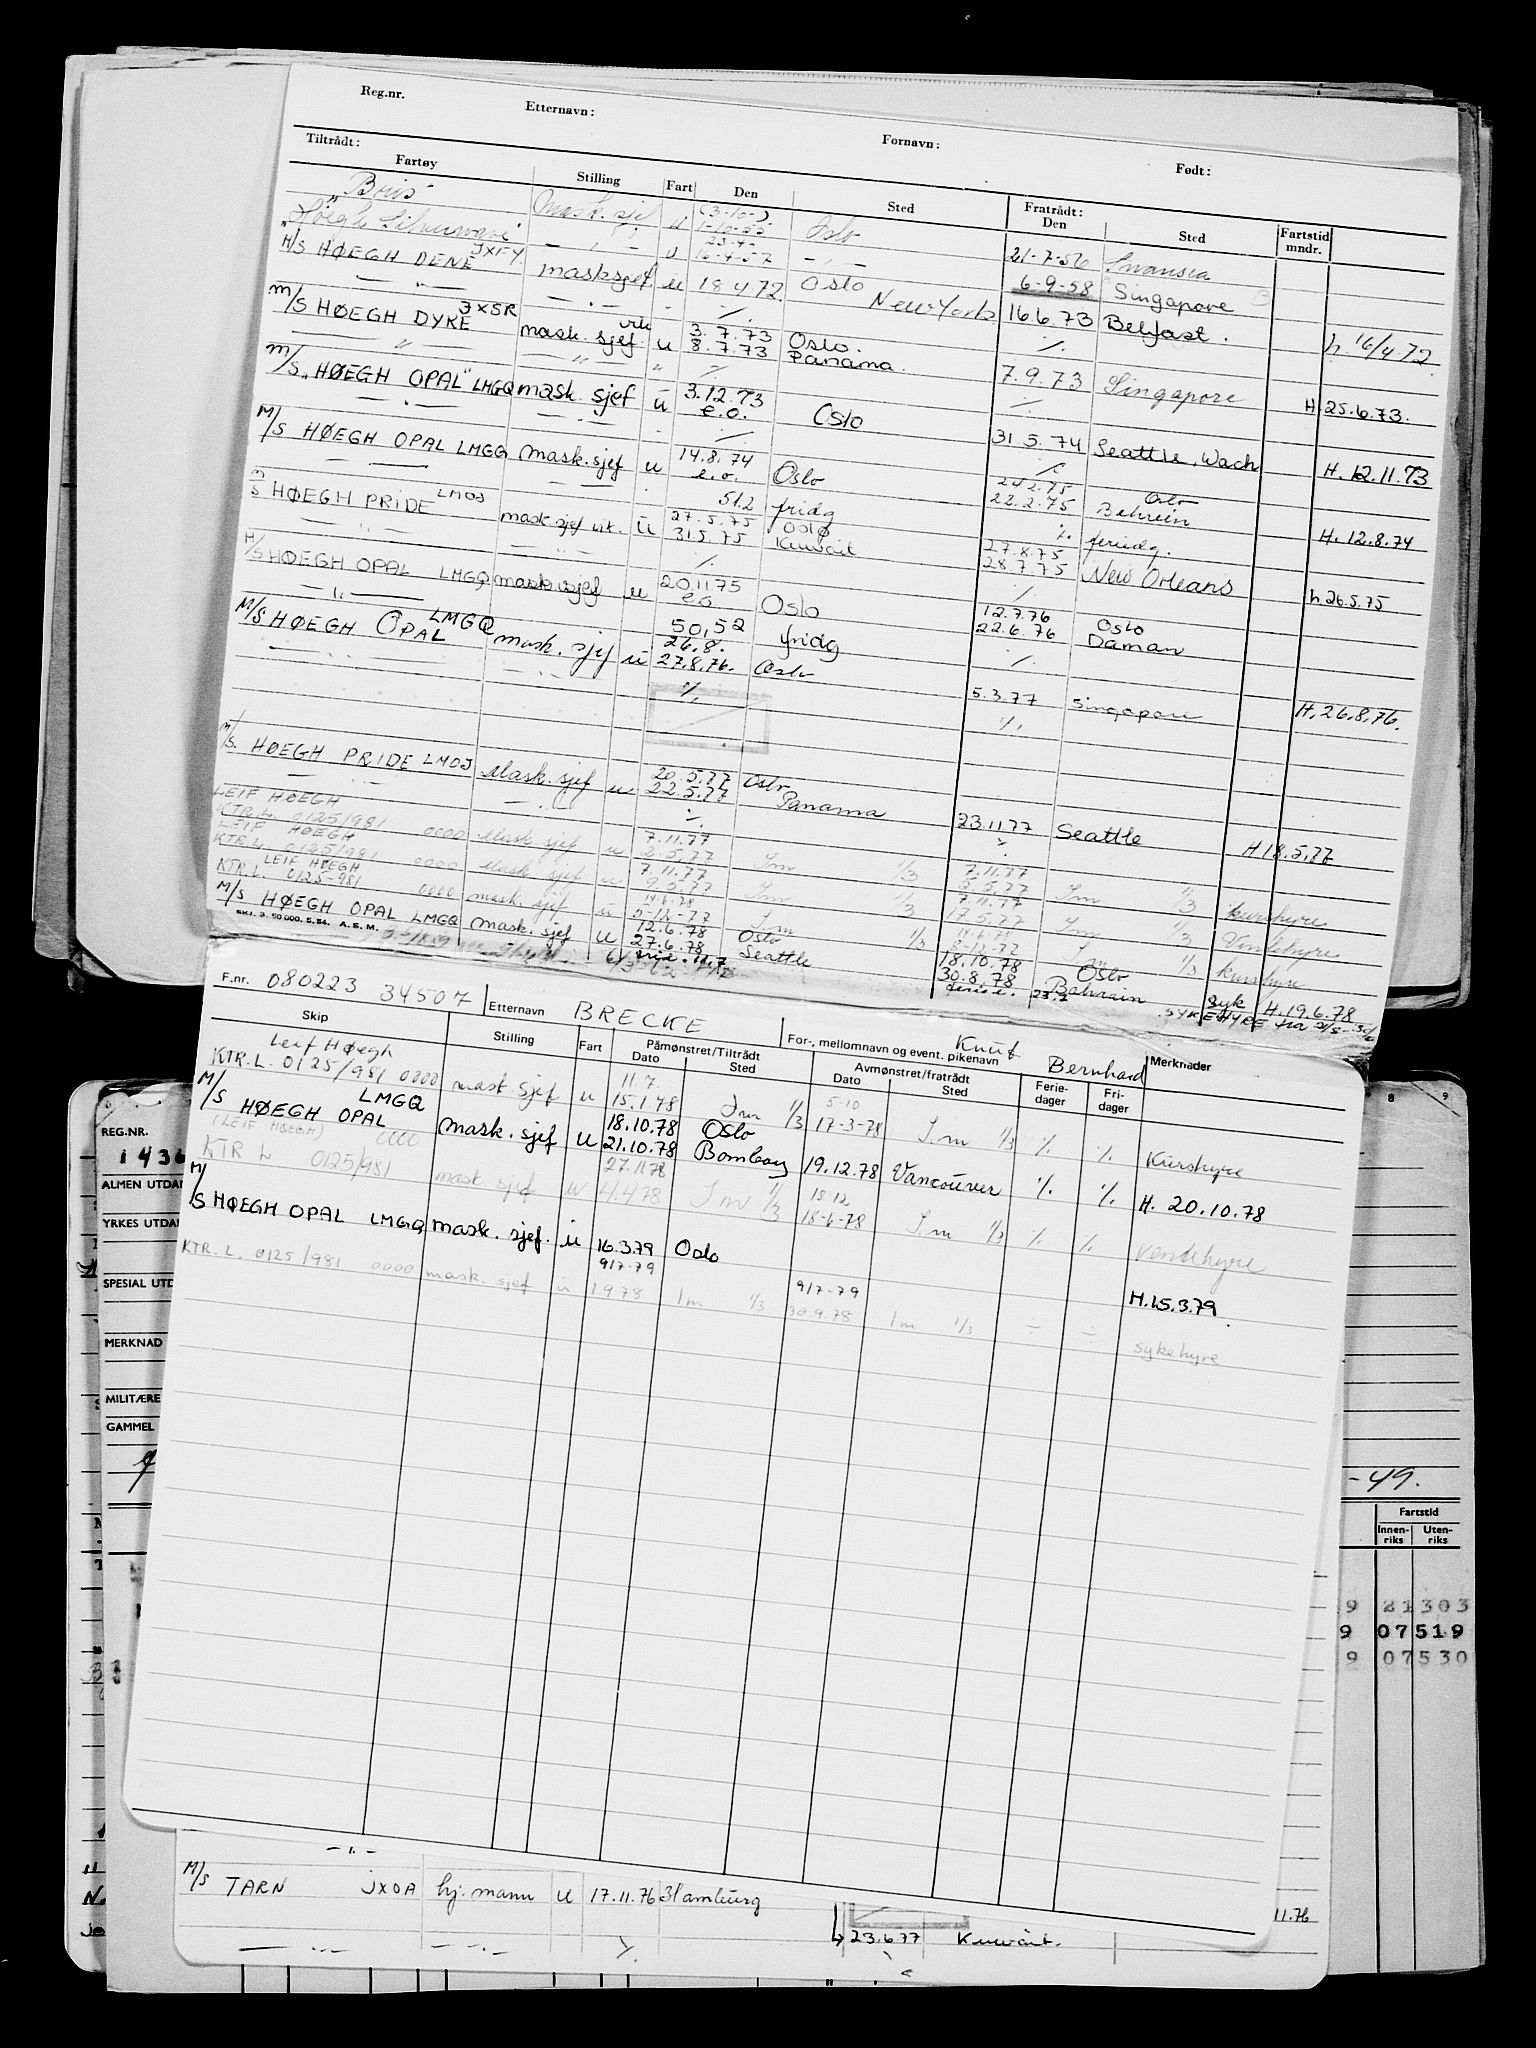 Reg.nr. Etternavn: Fornavn: Født:
Tiltrådt: Fratrådt: Fartstid mndr.
Fartøy Stilling Fart Den Sted Den Sted
"Bris" Mask. sjef u (3-10-) 1-10-55 Oslo 21-7-56 Swansea
"Høegh Silverwave" — " — u 23.4- 16-4-57 — " — 6-9-58 Singapore
M/S HØEGH DENE JXFY masksjef. u 18 4 72 Oslo 16.6.73 Belfast. h. 16/4 72
— " — — " — - ./. New York ./.
M/S HØEGH DYRE JXSR mask. sjef. vik u 3.7.73 Oslo. 7.9.73 Singapore H. 25.6.73.
— " — — " — " 8.7.73 Panama. ./.
M/S "HØEGH OPAL" LMGQ mask. sjef u 3.12.73 e.o. Oslo 31 5.74 Seattle, Wach H. 12.11.73
— " — — " — - ./. ./.
M/S HØEGH OPAL LMGQ mask. sjef u 14.8.74 e.o. Oslo 24.2.75 22.2.75 Oslo Bahrein H. 12.8.74
51.2 fridg ./. feriedg.
M/S HØEGH PRIDE LMOJ mask sjef vik. u 27.5.75 31.5.75 Oslo Kuwait 27.8.75 28.7.75 New Orleans h 26.5.75
— " — — " — ./. ./.
M/S HØEGH OPAL LMGQ mask sjef u 20.11.75 e.o Oslo 12.7.76 22.6.76 Oslo Daman
— " — 50,52 fridg ./.
M/S HØEGH OPAL LMGQ mask. sjef u 26.8. 27.8.76. Oslo 5.3.77 Singapore H. 26.8.76.
— " — ./. ./.
M/S. HØEGH PRIDE LMOJ Mask. sjef u 20.5.77 22.5.77 Oslo Panama 23.11.77 Seattle H 18.5.77
— " — — " — ./.
LEIF HØEGH
KTR L. 0125/981 0000 Mask sjef u 7.11.77 2.5.77 Im 1/3 7.11.77 Im 1/3 kurshyre
LEIF HØEGH
KTR.L. 0125/981 0000 Mask sjef u 7.11.77 9.5.77 Im 1/3 7.11.77 17.5.77 Im 1/3 Ventehyre
LEIF HØEGH
KTR.L. 0125-981 0000 mask. sjef u 5-12-77 Im 1/3 8-12-77 Im 1/3 kurshyre
M/S HØEGH OPAL LMGQ mask. sjef u 12.6.78 27.6.78 Oslo Seattle 18.10.78 30.8.78 Oslo Bahrain syk H. 19.6.78
SKJ. 3. 50 000. 5. 54. A. S. M.
SYKEHYRE fra
F.nr. 080223 34507 Etternavn BRECKE For-, mellomnavn og event. pikenavn Knut Bernhard
Skip Stilling Fart Påmønstret/Tiltrådt Dato Sted Avmønstret/fratrådt Dato Sted Ferie-dager Fri-dager Merknader
Leif Høegh
KTR.L. 0125/981 0000 mask sjef u 11.7. 15.1.78 Im 1/3 5-10 17-3-78 I.m 1/3 ./. ./. Kurshyre
M/S HØEGH OPAL LMGQ mask. sjef u 18.10.78 21.10.78 Oslo Bombay 19.12.78 Vancouver ./. ./. H. 20.10.78
(LEIF HØEGH)
KTR L 0125/981 0000 mask sjef u 27.11.78 4.4.78 Im 1/3 18.12 18-6-78 I.m 1/3 ./. ./. ventehyre
M/S HØEGH OPAL LMGQ mask. sjef. u 16.3.79 Oslo H.15.3.79.
KTR. L. 0125/981 0000 mask. sjef u 9/7-79 1978 Im 1/3 9/7-79 30.9.78 Im 1/3 ÷ ÷ sykehyre
REG.NR.
1436
ALMEN UTDA
YRKES UTDA
SPESIAL UTD
MERKNAD
MILITÆRE
GAMMEL
8 9
-49.
Fartstid
Innen-riks Uten-riks
9 21303
9 07519
9 07530
— " —
M/S TARN JXOA hj. mann u 17.11.76 Hamburg 11.76
23.6.77 Kuwait.
— " — — " — ./.